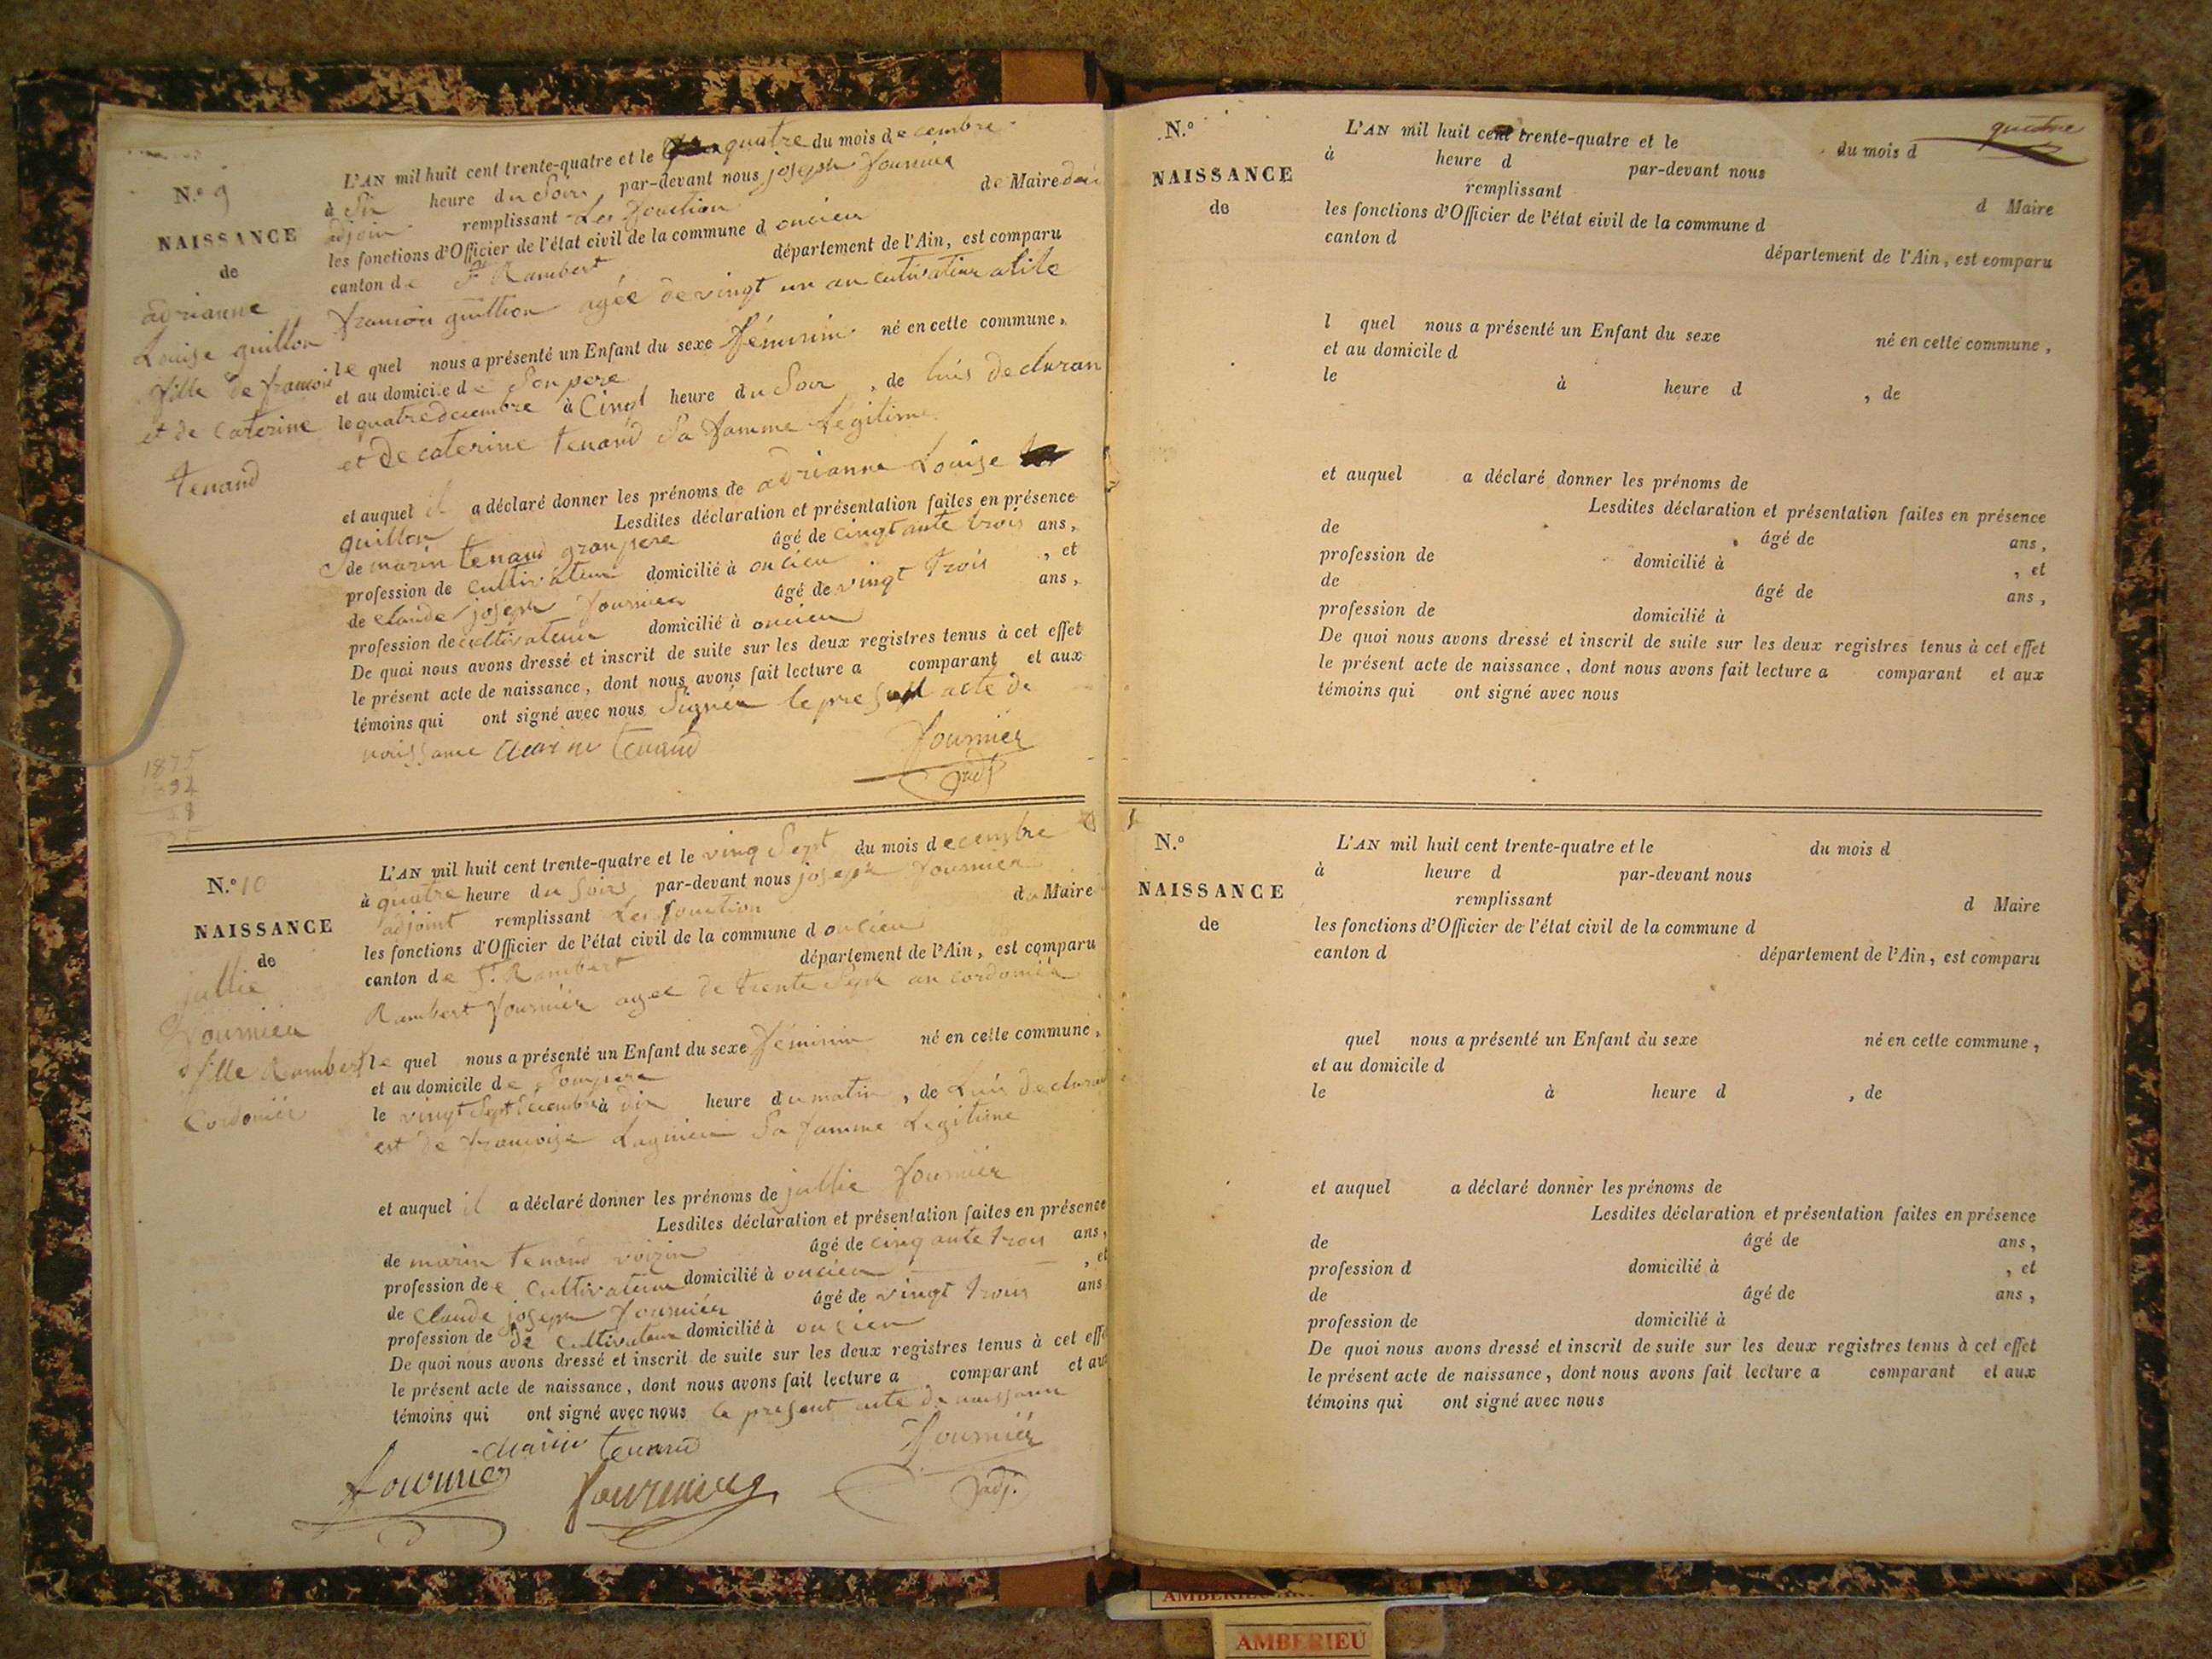 N.º 9
NAISSANCE
de
adrianne
Louise guillon
fille de francois
et de caterine
tenand
L'AN mil huit cent trente-quatre et le quatre du mois decembre
à Six heure du Soir, par-devant nous joseph fournier
adjoin remplissant Les fonction de Maire
les fonctions d'Officier de l'état civil de la commune d oncieu
canton de St Rambert département de l'Ain, est comparu
francois guillion agée de vingt un an cultivateur
le quel nous a présenté un Enfant du sexe féminin né en cette commune,
et au domicile de Son pere
le quatre decembre à Cinq heure du Soir, de luis declaran
et de caterine tenand Sa famme Legitime
et auquel il a déclaré donner les prénoms de adrianne Louise
guillon Lesdites déclaration et présentation faites en présence
de marin tenand granpere âgé de cingtante trois ans,
profession de cultivateur domicilié à oncieu, et
de claude joseph fournier âgé de vingt trois ans,
profession de cultivateur domicilié à oncieu
De quoi nous avons dressé et inscrit de suite sur les deux registres tenus à cet effet
le présent acte de naissance, dont nous avons fait lecture a comparant et aux
témoins qui ont signé avec nous Signér le present acte de
naissance marin tenand
fournier
adj
1875
N.º 10
NAISSANCE
de
jullie
fournier
fille Rambert
Cordoniér
L'AN mil huit cent trente-quatre et le ving Sept du mois decembre
à quatre heure du Soir, par-devant nous joseph fournier
adjoint remplissant Les fonction du Maire
les fonctions d'Officier de l'état civil de la commune d oncieu
canton de St. Rambert département de l'Ain, est comparu
Rambert fournier agee de trente Sept an cordoniér
le quel nous a présenté un Enfant du sexe féminin né en cette commune,
et au domicile de Sonpere
le vingt Sept decembre à dix heure du matin, de Luis declaran
est de francoise Lagnieu Sa famme Legitime
et auquel il a déclaré donner les prénoms de jullie fourniér
Lesdites déclaration et présentation faites en présence
de marin tenand voizin âgé de cinq ante trois ans,
profession de e Cultivateur domicilié à oncieu, et
de Claude joseph fourniér âgé de vingt trois ans
profession de de Cultivateur domicilié à oncieu
De quoi nous avons dressé et inscrit de suite sur les deux registres tenus à cet effe
le présent acte de naissance, dont nous avons fait lecture a comparant et aux
témoins qui ont signé avec nous le present acte de naissance
marin tenand
fournier
fournier
fourniér
adj.
quatre
N.º
NAISSANCE
de
L'AN mil huit cent trente-quatre et le du mois d
à heure d par-devant nous
remplissant d Maire
les fonctions d'Officier de l'état civil de la commune d
canton d département de l'Ain, est comparu
l quel nous a présenté un Enfant du sexe né en cette commune,
et au domicile d
le à heure d , de
et auquel a déclaré donner les prénoms de
Lesdites déclaration et présentation faites en présence
de âgé de ans,
profession de domicilié à , et
de âgé de ans,
profession de domicilié à
De quoi nous avons dressé et inscrit de suite sur les deux registres tenus à cet effet
le présent acte de naissance, dont nous avons fait lecture a comparant et aux
témoins qui ont signé avec nous
N.º
NAISSANCE
de
L'AN mil huit cent trente-quatre et le du mois d
à heure d par-devant nous
remplissant d Maire
les fonctions d'Officier de l'état civil de la commune d
canton d département de l'Ain, est comparu
quel nous a présenté un Enfant du sexe né en cette commune,
et au domicile d
le à heure d , de
et auquel a déclaré donner les prénoms de
Lesdites déclaration et présentation faites en présence
de âgé de ans,
profession d domicilié à , et
de âgé de ans,
profession de domicilié à
De quoi nous avons dressé et inscrit de suite sur les deux registres tenus à cet effet
le présent acte de naissance, dont nous avons fait lecture a comparant et aux
témoins qui ont signé avec nous
AMBERIEU
AMBERIEU